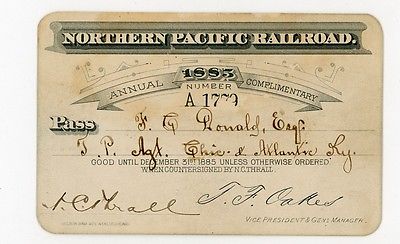 NORTHERN PACIFIC RAILROAD.
1885
ANNUAL NUMBER COMPLIMENTARY
A 1779
Pass F. C Donald, Esq.
T. P. Agt. Chic & Atlantic Ry.
GOOD UNTIL DECEMBER 31ST 1885 UNLESS OTHERWISE ORDERED
WHEN COUNTERSIGNED BY N.C. THRALL.
N.C. Thrall T. F. Oakes
VICE PRESIDENT & GEN'L MANAGER.